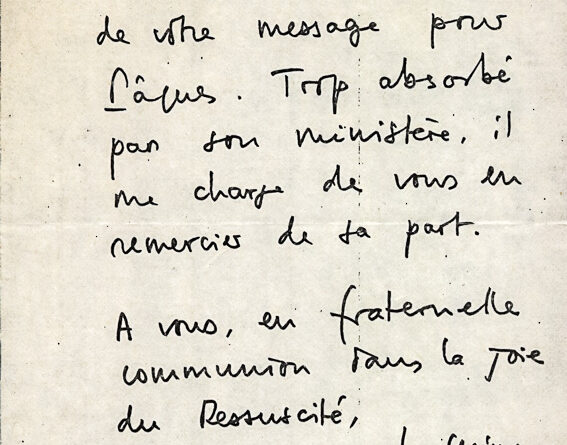 de votre message pour
Pâques. Trop absorbé
par son ministère, il
me charge de vous en
remercier de sa part.
A vous, en fraternelle
communion dans la joie
du Ressuscité,